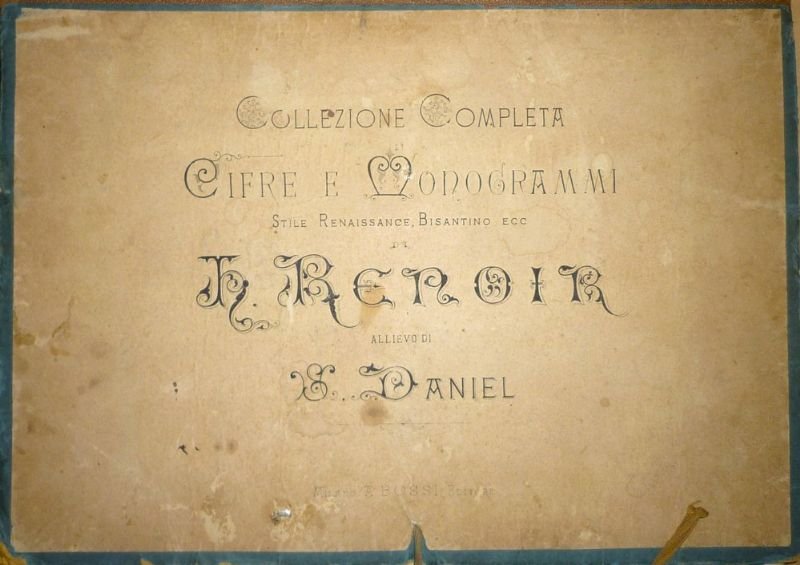 COLLEZIONE COMPLETA
DI
CIFRE E MONOGRAMMI
STILE RENAISSANCE, BISANTINO ECC
DI
H. RENOIR
ALLIEVO DI
S. DANIEL
MILANO E BOSSI EDITORE